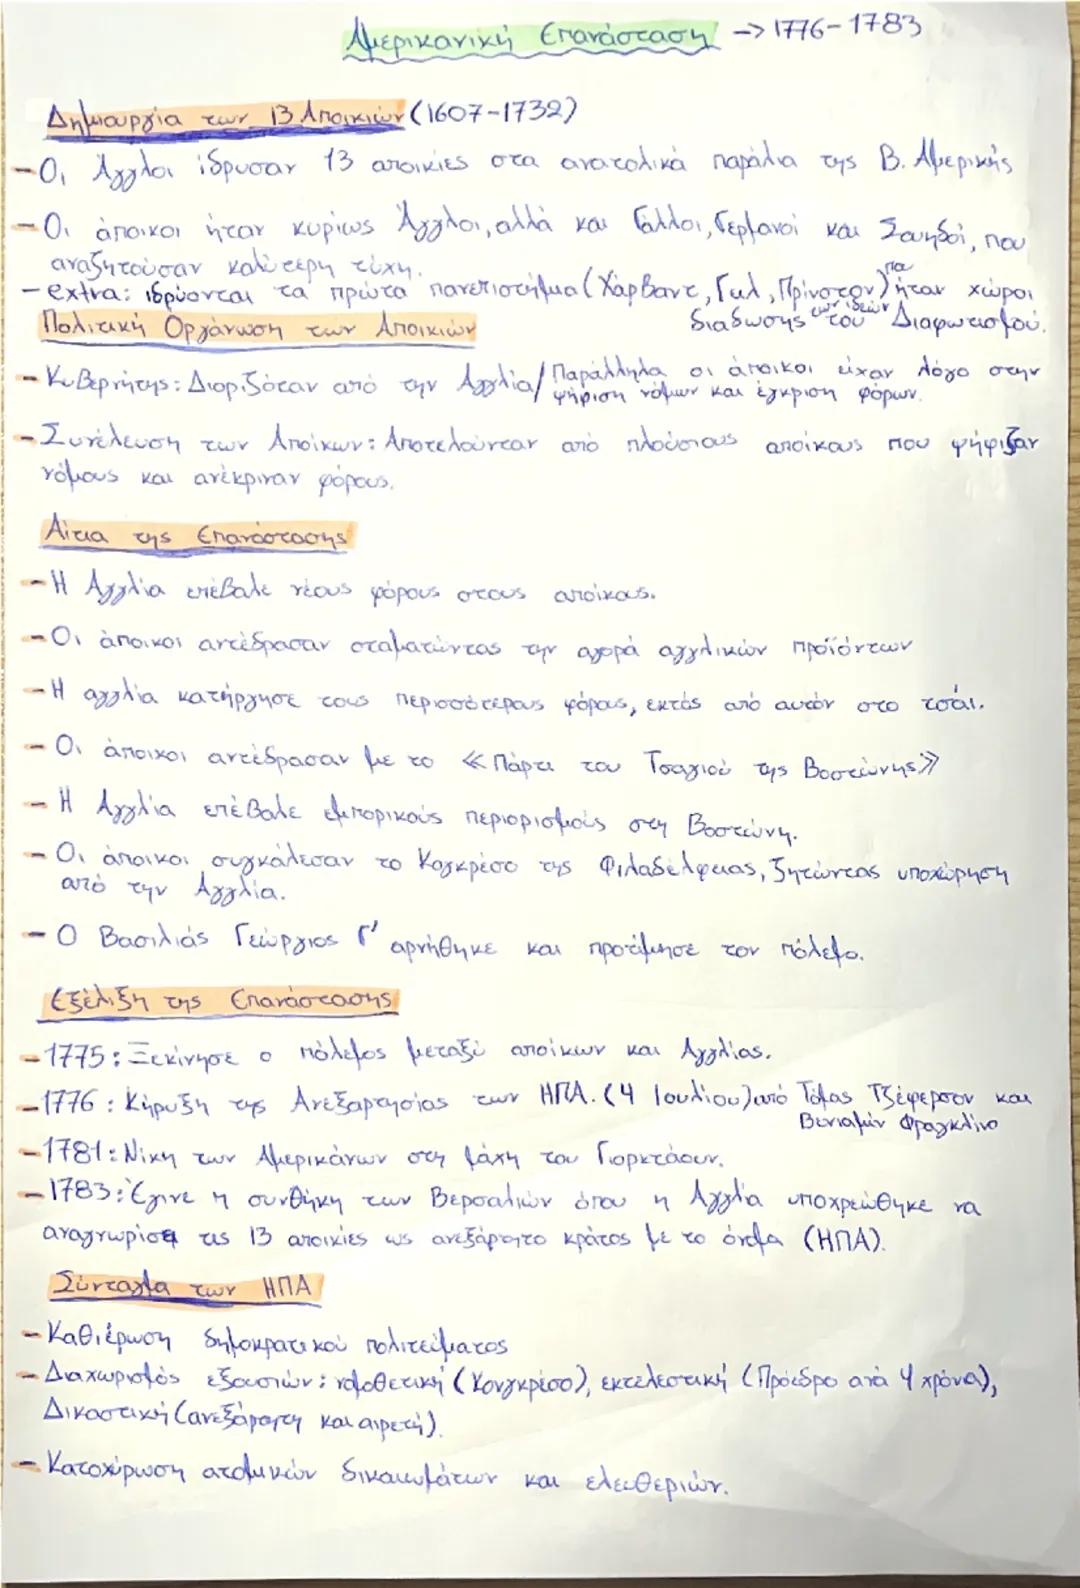 Αμερικανική Επανάσταση -> 1776-1783
Δημιουργία των 13 Αποικιών (1607-1732)
- Οι Άγγλοι ίδρυσαν 13 αποικίες στα ανατολικά παράλια της Β. Αμερικής
- Οι άποικοι ήταν κυρίως Άγγλοι, αλλά και Γάλλοι, Γερμανοί και Σουηδοί, που
αναζητούσαν καλύτερη τύχη.
- extra: ιδρύονται τα πρώτα πανεπιστήμια (Χάρβαντ, Γιέιλ, Πρίνστον) που ήταν χώροι
διαδωσης των ιδεών του Διαφωτισμού.
Πολιτική Οργάνωση των Αποικιών
- Κυβερνήτης: Διοριζόταν από την Αγγλία/ Παράλληλα οι άποικοι είχαν λόγο στην
ψήφιση νόμων και έγκριση φόρων.
- Συνέλευση των Αποίκων: Αποτελούνταν από πλούσιους αποίκους που ψήφιζαν
νόμους και ενέκριναν φόρους.
Αίτια της Επανάστασης
- Η Αγγλία επέβαλε νέους φόρους στους αποίκους.
- Οι άποικοι αντέδρασαν σταματώντας την αγορά αγγλικών προϊόντων
- Η αγγλία κατήργησε τους περισσότερους φόρους, εκτός από αυτόν στο τσάι.
- Οι άποικοι αντέδρασαν με το «Πάρτι του Τσαγιού της Βοστώνης»
- Η Αγγλία επέβαλε εμπορικούς περιορισμούς στη Βοστώνη.
- Οι άποικοι συγκάλεσαν το Κογκρέσο της Φιλαδέλφειας, ζητώντας υποχώρηση
από την Αγγλία.
- Ο Βασιλιάς Γεώργιος Γ' αρνήθηκε και προτίμησε τον πόλεμο.
Εξέλιξη της Επανάστασης
- 1775: Ξεκίνησε ο πόλεμος μεταξύ αποίκων και Αγγλίας.
- 1776: Κήρυξη της Ανεξαρτησίας των ΗΠΑ. (4 Ιουλίου) από Τόμας Τζέφερσον και
Βενιαμίν Φραγκλίνο
- 1781: Νίκη των Αμερικάνων στη μάχη του Γιορκτάουν.
- 1783: Έγινε η συνθήκη των Βερσαλιών όπου η Αγγλία υποχρεώθηκε να
αναγνωρίσει τις 13 αποικίες ως ανεξάρτητο κράτος με το όνομα (ΗΠΑ).
Σύνταγμα των ΗΠΑ
- Καθιέρωση δημοκρατικού πολιτεύματος
- Διαχωρισμός εξουσιών: νομοθετική (Κονγκρέσο), εκτελεστική (Πρόεδρο ανά 4 χρόνια),
Δικαστική (ανεξάρτητη και αιρετή).
- Κατοχύρωση ατομικών δικαιωμάτων και ελευθεριών.